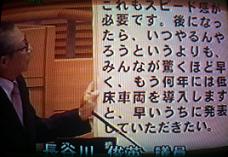 これもスピード感が
必要です。後になっ
たら、いつやるんや
ろうというよりも、
みんなが驚くほど早
く、もう何年には低
床車両を導入します
と、早いうちに発表
していただきたい。
長谷川 議員